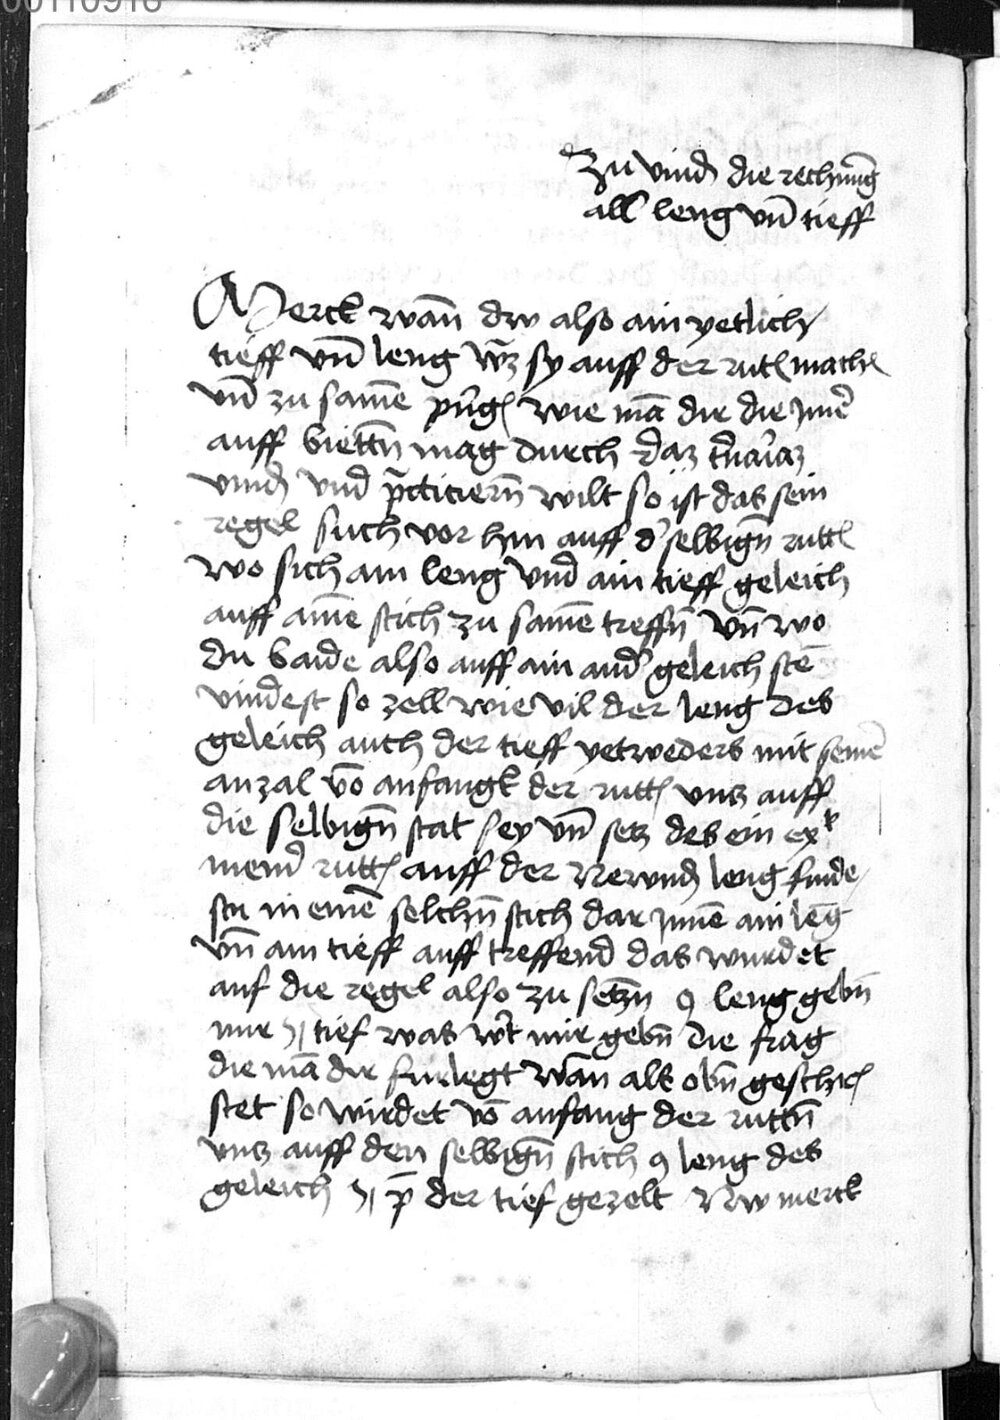 00110918
Zu vindn̄ die rechnūg
all leng vn̄ tieff
Merck wan̄ dw also ain yetlich
tieff vn̄ leng wz sy auff der rutn̄ machn̄
vnd zu same pringn̄ wie mā dir die ynnē
auff biettn̄ mag durch daz
vindn̄ vnd pcticiern̄ wilt so ist das sein
regel such vor hin auff d' selbign̄ ruttn̄
wo sich ain leng vnd ain tieff geleich
auff aine stich zu same treffn̄ vn̄ wo
du baide also auff ain and' geleich stē
vindest so zell wie vil der leng des
geleich auch der tieff yetweders mit seinē
anzal vō anfangk der ruttn̄ vntz auff
die selbign̄ stat sey vn̄ setz des ein ex
auff der leng finde
stu in einē selchn̄ stich dar ynnē ain lēg
vn̄ ain tieff auff treffend das wurdet
auf die regel also zu setzn̄ 9 leng gebn̄
mir tief was wt mir gebn̄ die frag
die mā dir furlegt wān als obn̄ geschribn̄
stet so wirdet vō anfang der ruttn̄
vntz auff den selbign̄ stich 9 leng des
geleich der tief gezelt Nw merck